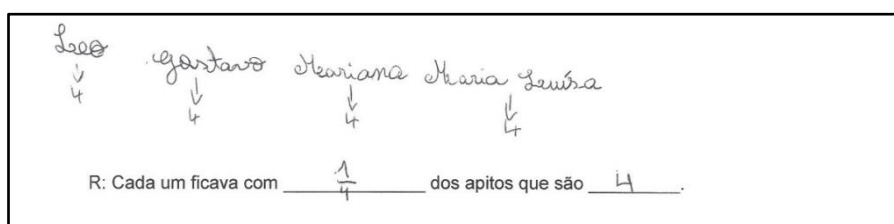 Leo Gostavo Mariana Maria Luísa
↓ ↓ ↓ ↓
4 4 4 4
R: Cada um ficava com 1/4 dos apitos que são 4.